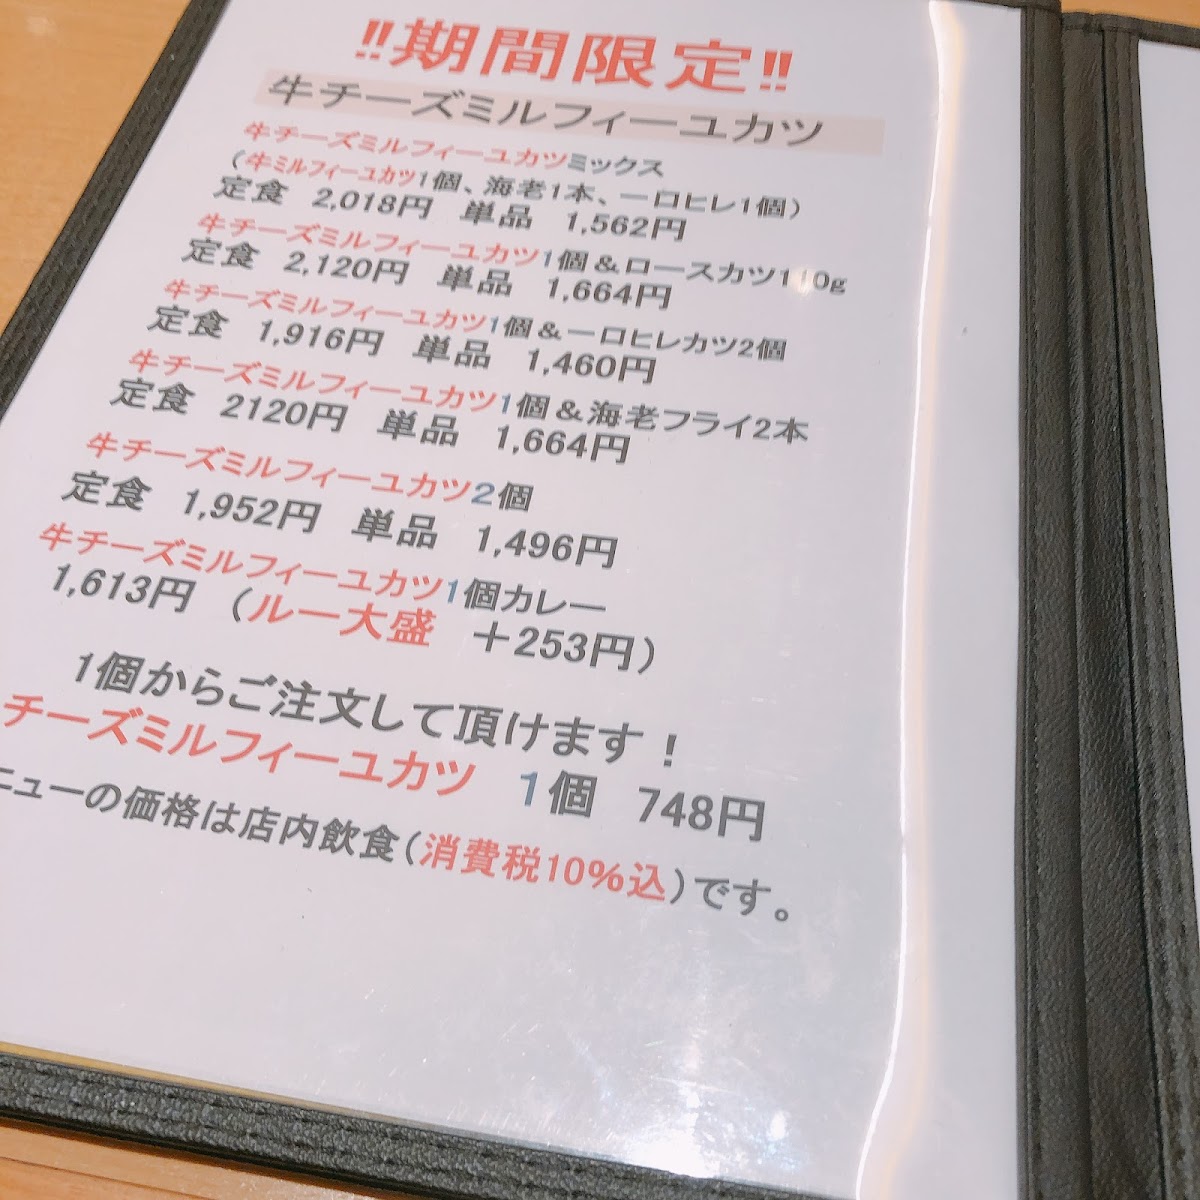 ‼期間限定‼
牛チーズミルフィーユカツ
牛チーズミルフィーユカツミックス
(牛ミルフィーユカツ1個、海老1本、一口ヒレ1個)
定食 2,018円 単品 1,562円
牛チーズミルフィーユカツ1個&ロースカツ110g
定食 2,120円 単品 1,664円
牛チーズミルフィーユカツ1個&一口ヒレカツ2個
定食 1,916円 単品 1,460円
牛チーズミルフィーユカツ1個&海老フライ2本
定食 2120円 単品 1,664円
牛チーズミルフィーユカツ2個
定食 1,952円 単品 1,496円
牛チーズミルフィーユカツ1個カレー
1,613円 (ルー大盛 +253円)
1個からご注文して頂けます!
チーズミルフィーユカツ 1個 748円
ニューの価格は店内飲食(消費税10%込)です。